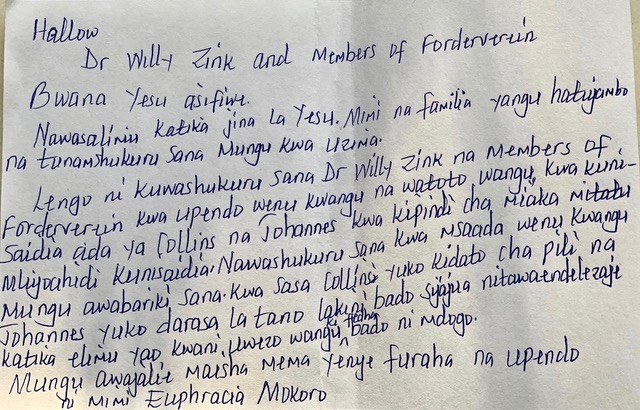 Hallow
Dr Willy Zink and Members of Forderverein
Bwana Yesu asifiwe.
Nawasalimu katika jina la Yesu. Mimi na familia yangu hatujambo
na tunamshukuru sana Mungu kwa uzima.
Lengo ni kuwashukuru sana Dr Willy Zink na Members of
Forderverein kwa upendo wenu kwangu na watoto wangu, kwa kuni-
Saidia ada ya Collins na Johannes kwa kipindi cha miaka mitatu
mliyoahidi kunisaidia. Nawashukuru sana kwa msaada wenu kwangu
Mungu awabariki sana. Kwa sasa Collins yuko kidato cha pili na
Johannes yuko darasa la tano lakini bado sijajua nitawaendelezaje
katika elimu yao kwani uwezo wangu ki fedha bado ni mdogo.
Mungu awajalie maisha mema yenye furaha na upendo
ni mimi Euphracia Mokoro